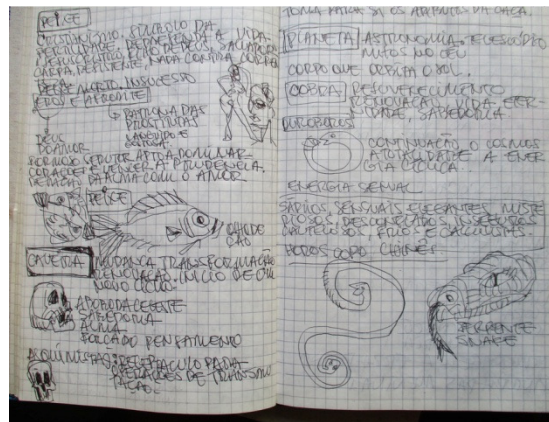 PEIXE
CRISTIANISMO, SÍMBOLO DA
FERTILIDADE, REPRESENTA A VIDA
JESUS CRISTO FILHO DE DEUS, SALVADOR
CARPA, PERSISTENTE, NADA CONTRA CORPO
PEIXE MORTO, INSUCESSO
EROS E AFRODITE
PATRONA DAS
PROSTITUTAS
DEUS
DO AMOR
FORMOSO SEDUTOR APTO A DOMINAR
CORAÇÕES E VENCER A PRUDENCIA
DA ALMA COM O AMOR
PEIXE
CAVEIRA MUDANÇA TRANSFORMAÇÃO
RENOVAÇÃO INÍCIO DE UM
NOVO CICLO.
ABOBODA CELESTE
SABEDORIA
ALMA
PENSAMENTO
ALQUIMISTAS: RECEPTACULO PARA
OPERAÇÕES DE TRANSMU
TAÇÃO
TOMA PARA SI OS ATRIBUTOS DA CAÇA.
PLANETA ASTRONOMIA, TELESCÓPIO
MITOS NO CÉU
CORPO QUE ORBITA O SOL.
COBRA REJUVENESCIMENTO
RENOVAÇÃO, VIDA ETER
NIDADE, SABEDORIA
OUROBORUS
CONTINUAÇÃO O COSMOS
A TOTALIDADE A ENER
GIA CÍCLICA.
ENERGIA SEXUAL
SÁBIOS, SENSUAIS, ELEGANTES, MISTE
RIOSOS, DESCONFIADOS INSEGUROS
FRIOS E CALCULISTAS.
HOROSCOPO CHINÊS
SERPENTE
SNAKE